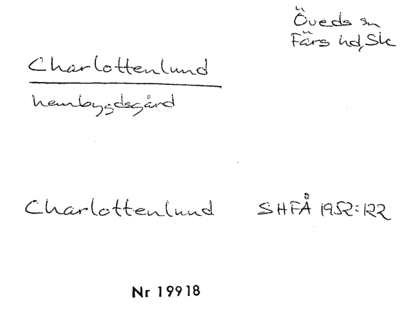 Öveds sn
Färs hd, Sk
Charlottenlund
hembygdsgård
Charlottenlund SHFÅ 1952:122
Nr 19918